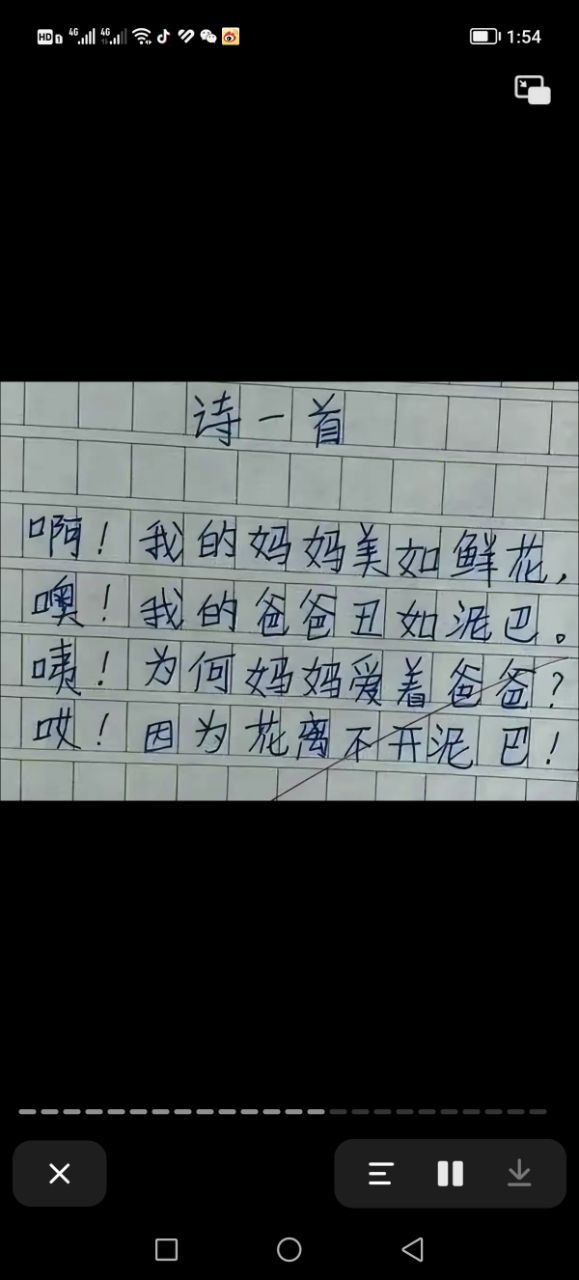 HD 1 4G 4G 1:54
诗一首
啊！我的妈妈美如鲜花，
噢！我的爸爸丑如泥巴。
咦！为何妈妈爱着爸爸？
哎！因为花离不开泥巴！